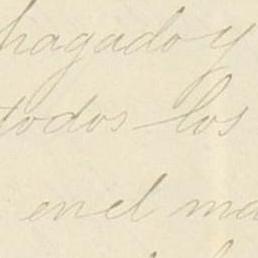 hagado y
todos los
en el ma